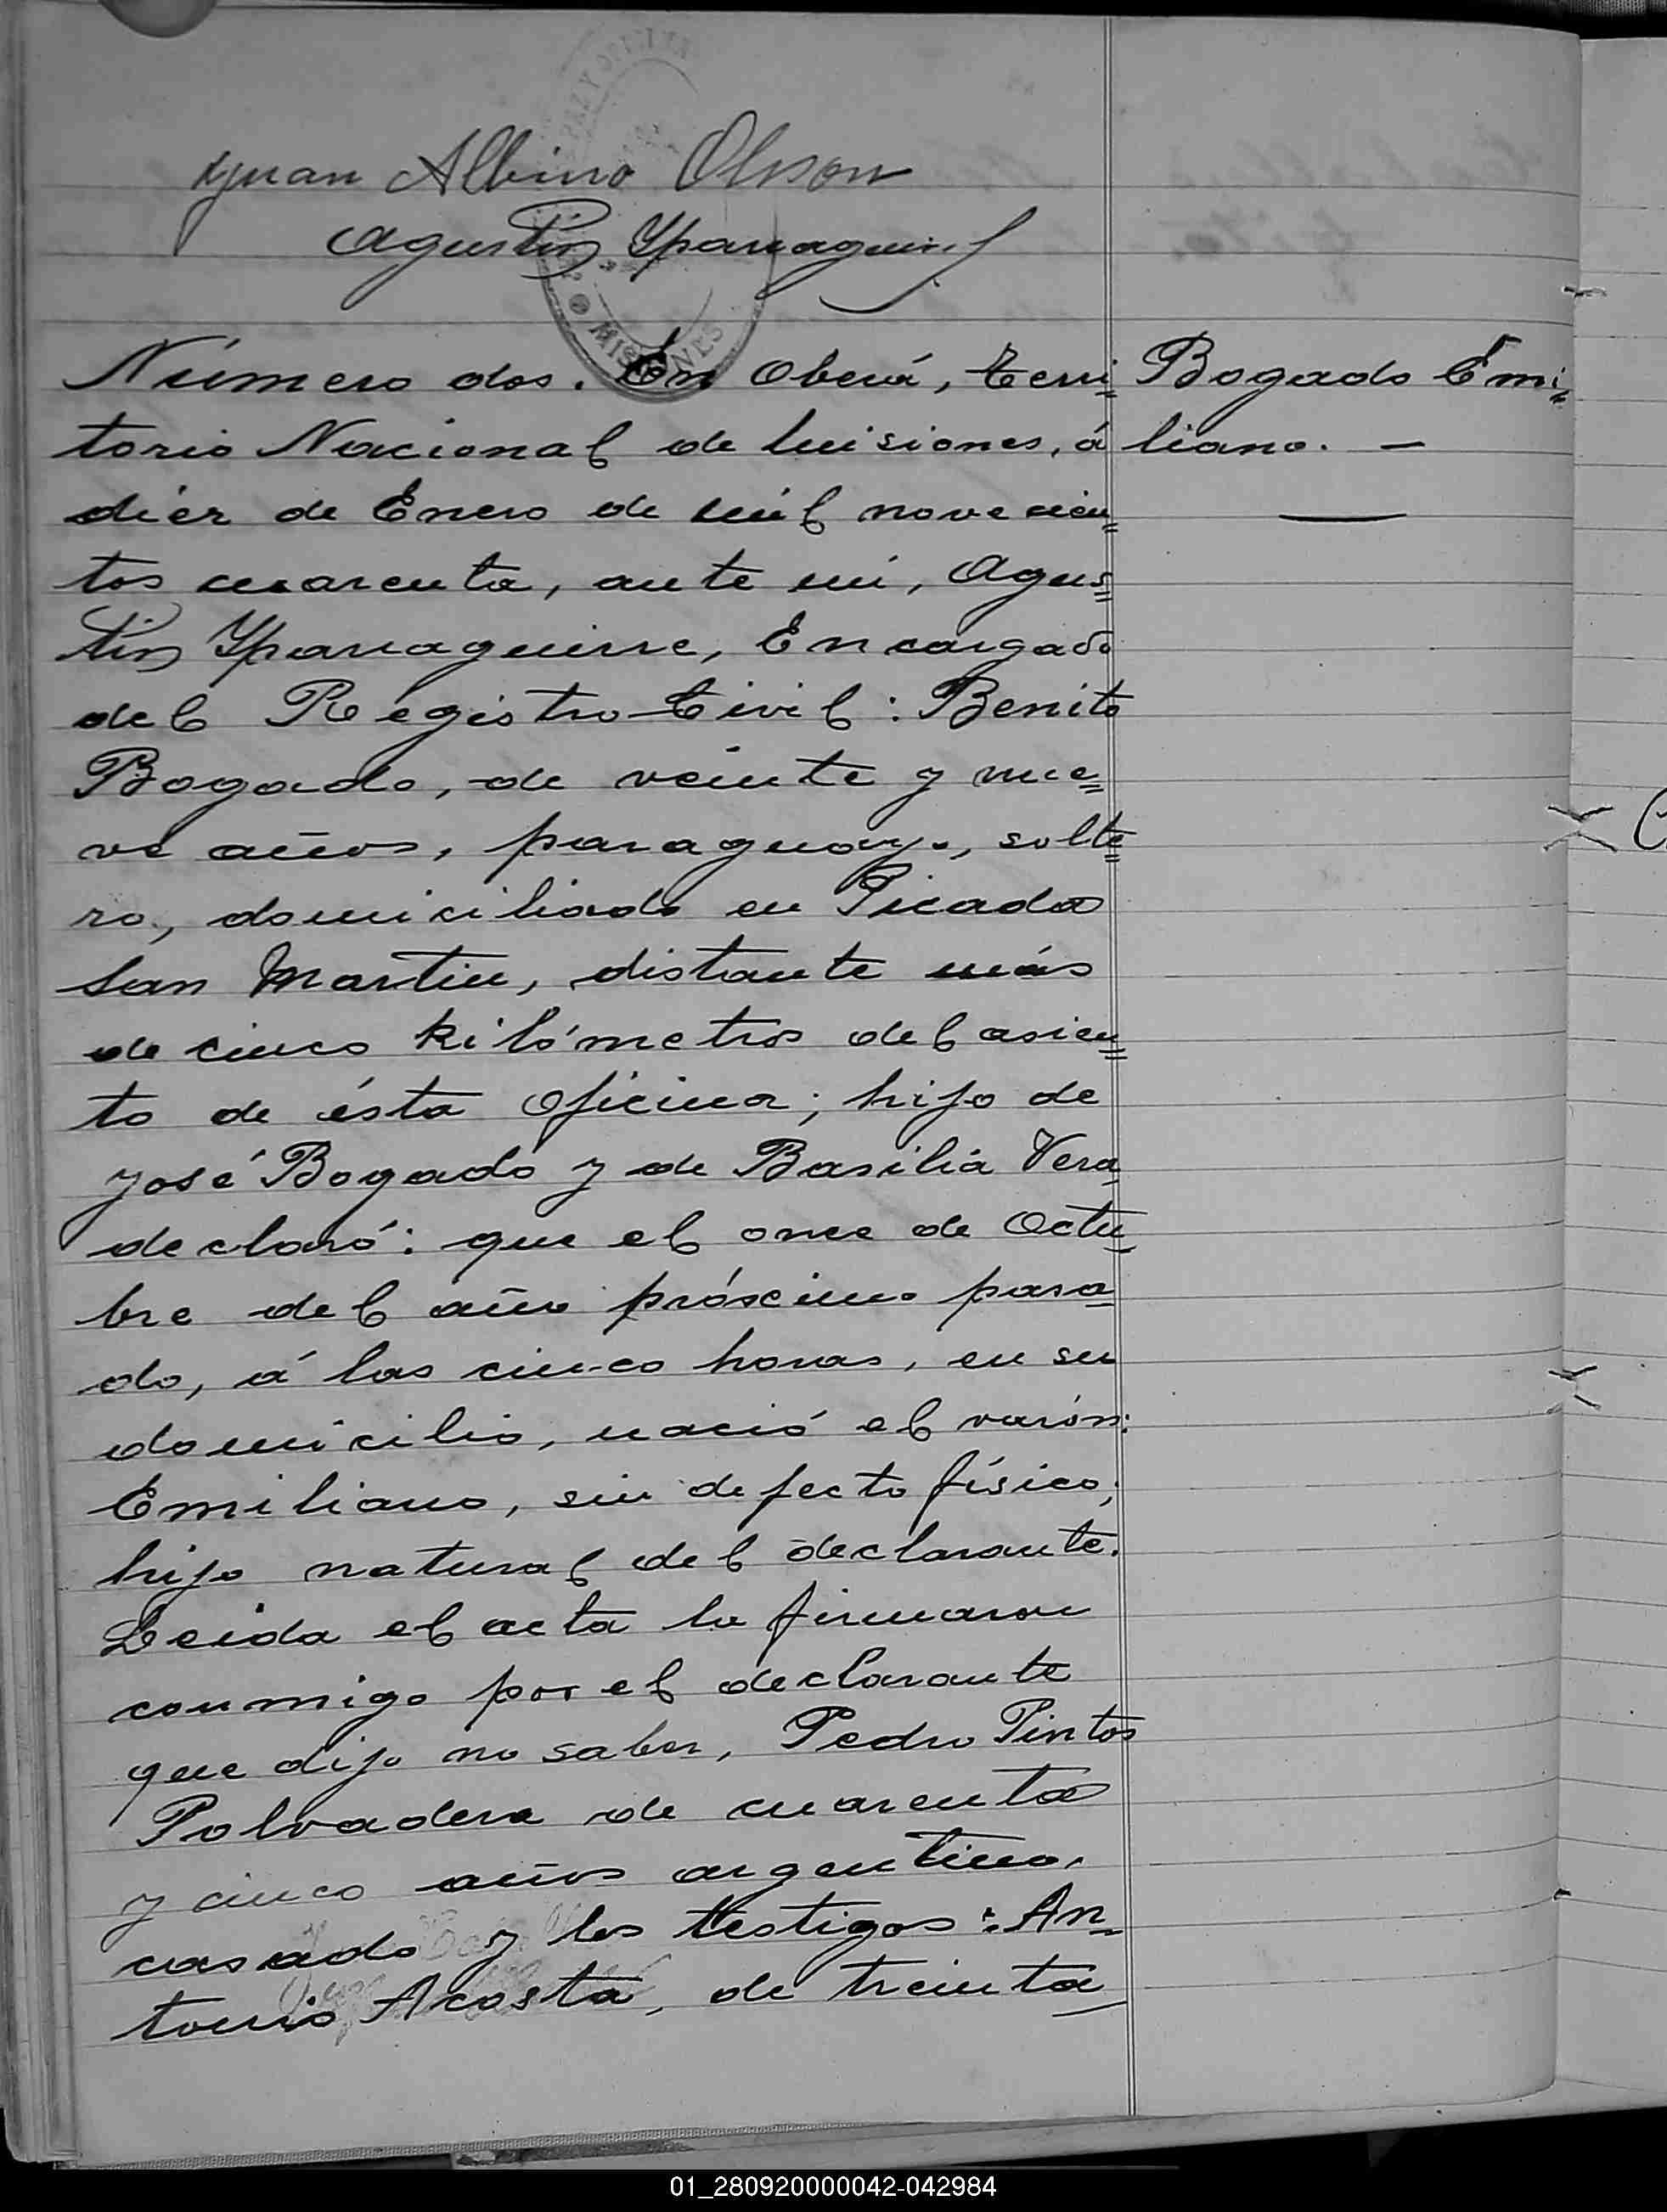 Juan Albino Olson
Agustín Yparraguirre
MISIONES
Número dos. En Oberá, Terri
torio Nacional de Misiones, á
diéz de Enero de mil novecien
tos cuarenta, ante mí, Agus
tín Yparraguirre, Encargado
del Registro Civil: Benito
Bogado, de veinte y nue
ve años, paraguayo, solte
ro, domiciliado en Picada
San Martin, distante más
de cinco kilómetros del asien
to de ésta Oficina; hijo de
José Bogado y de Basilia Vera
declaró: que el once de Octu
bre del año próximo pasa
do, á las cinco horas, en su
domicilio, nació el varón:
Emiliano, sin defecto físico;
hijo natural del declarante.
Leida el acta la firmaron
conmigo por el declarante
que dijo no saber, Pedro Pintos
Polvadera de cuarenta
y cinco años argentino,
casado y los testigos: An
tonio Acosta, de treinta
Bogado Emi
liano. —
01_280920000042-042984